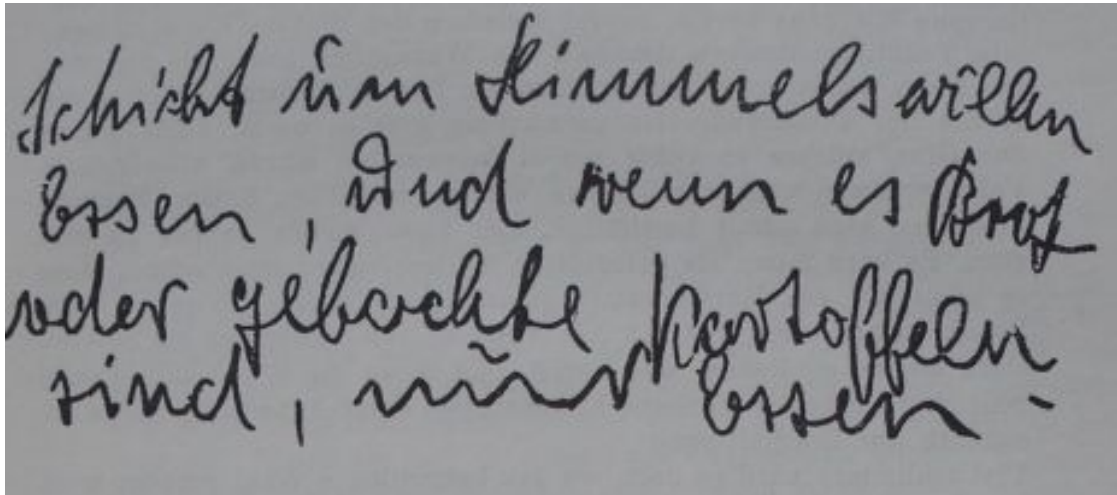 Schickt um Himmelswillen
Essen, und wenn es Brot
oder gekochte Kartoffeln
sind, nur Essen -